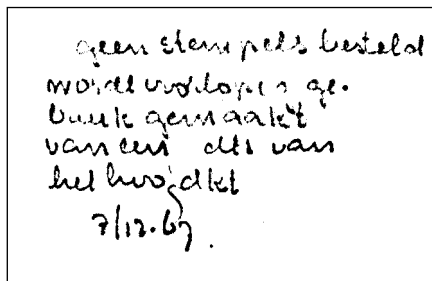 geen stempels besteld
wordt voorlopig ge-
bruik gemaakt
van een dts van
het hoofdkt
7/12.67.